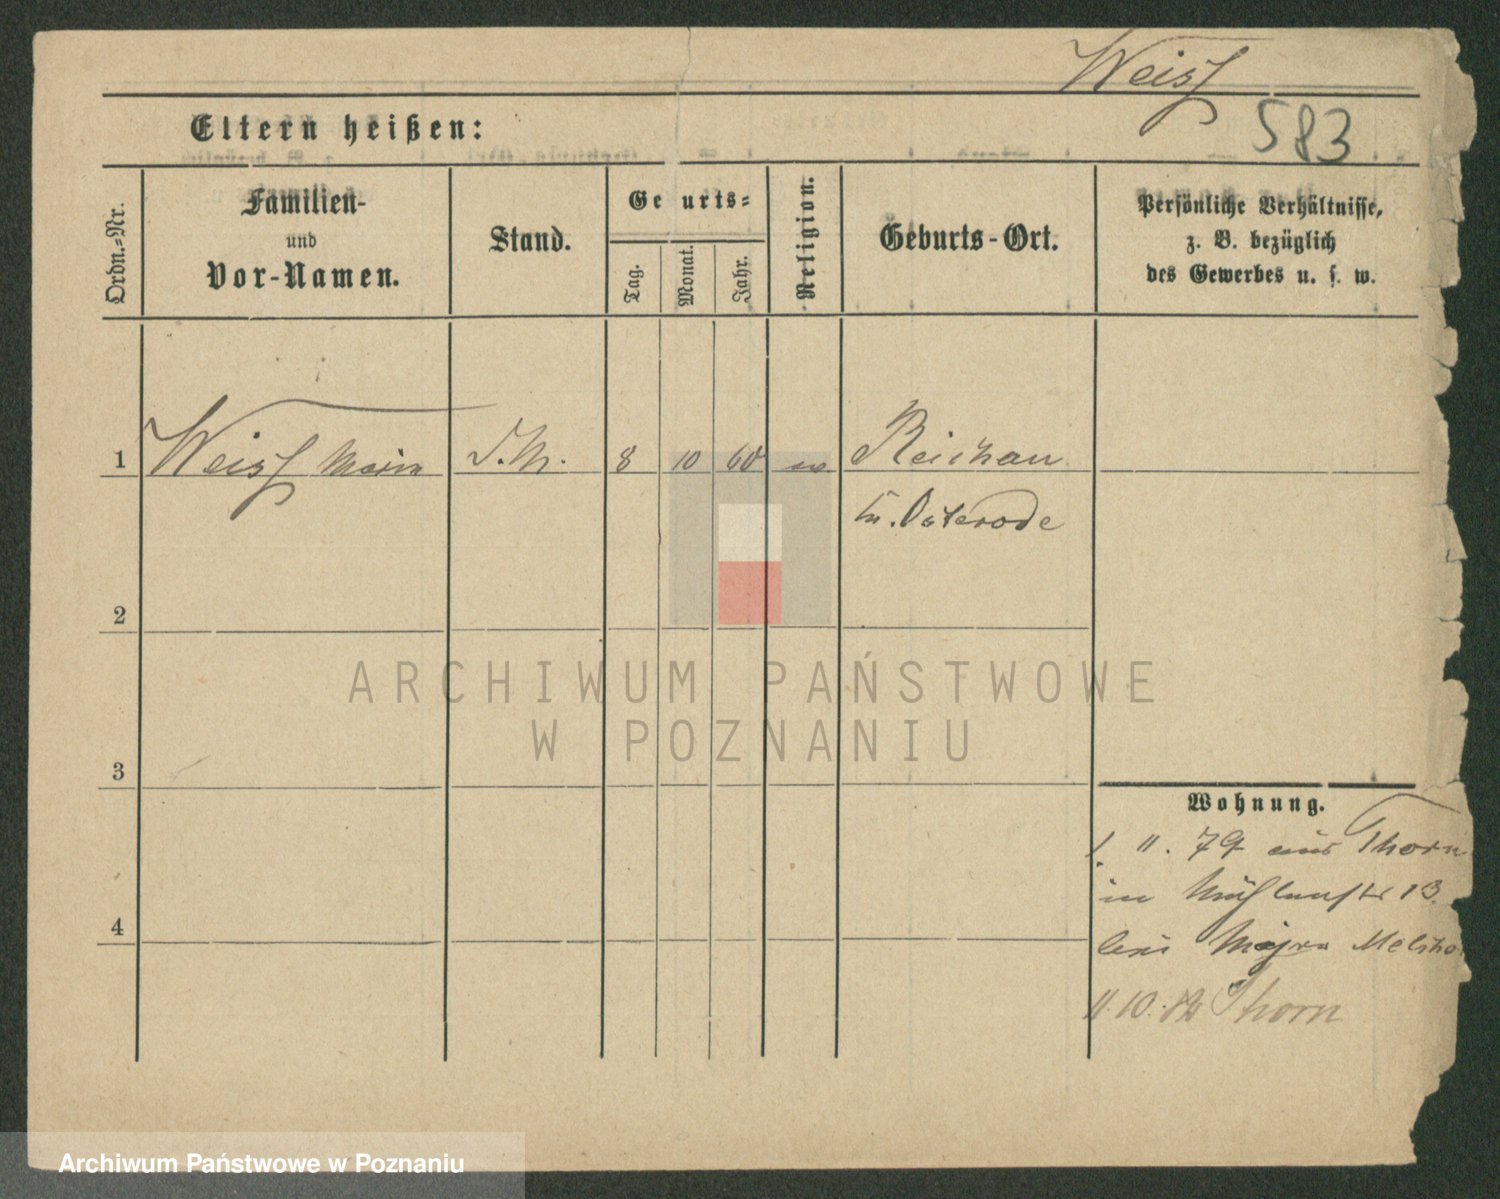 Weiß
583
Eltern heißen:
Ordn.-Nr.
Familien-
und
Vor-Namen.
Stand.
Geburts-
Tag.
Monat.
Jahr.
Religion.
Geburts-Ort.
Persönliche Verhältnisse,
z. B. bezüglich
des Gewerbes u. s. w.
1 Weiß Marie D.M. 8 10 60 ev Reichau
Kr. Osterode
2
ARCHIWUM PAŃSTWOWE
W POZNANIU
3
Wohnung.
1. 11. 79 aus Thorn
in Mühlenstr 13.
4
bei Major
11. 10. Thorn
Archiwum Państwowe w Poznaniu